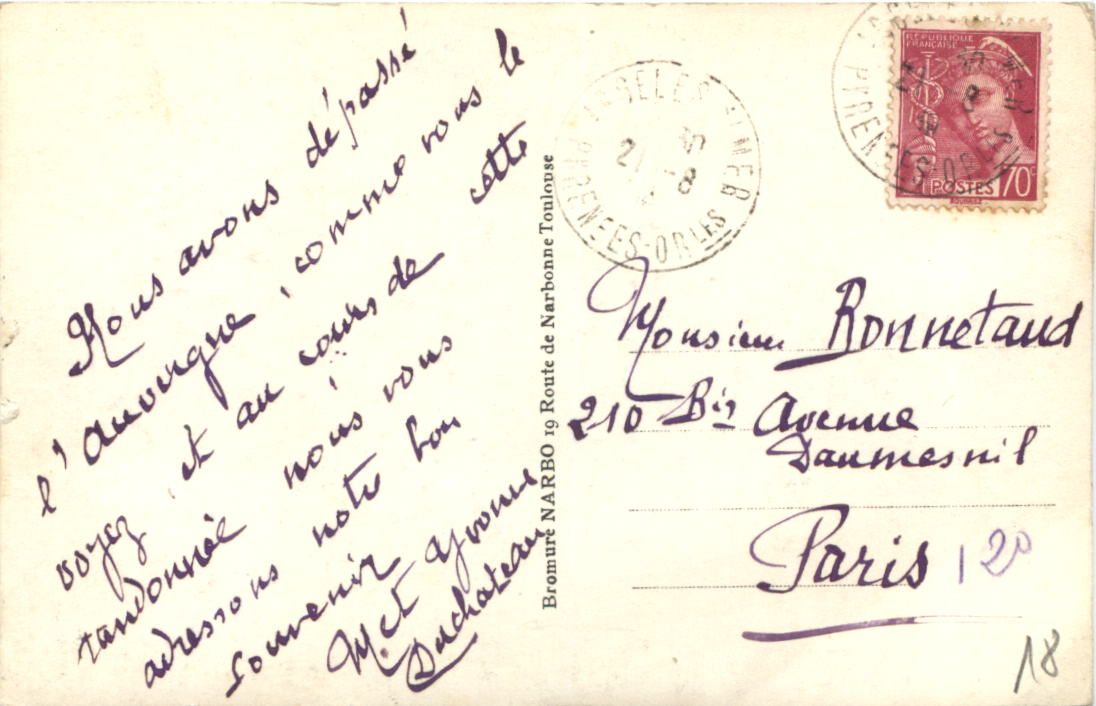 Nous avons dépassé
l'Auvergne, comme vous le
voyez, et au cours de cette
randonnée nous vous
adressons notre bon
souvenir
M. et Yvonne
Duchateau
Bromure NARBO 19 Route de Narbonne Toulouse
ARGELES S/MER
21 -8
PYRENEES-ORLES
RÉPUBLIQUE
FRANÇAISE
POSTES 70c
PYRENEES-ORLES
Monsieur Bonnetaud
210 Bis Avenue
Daumesnil
Paris 12º
18